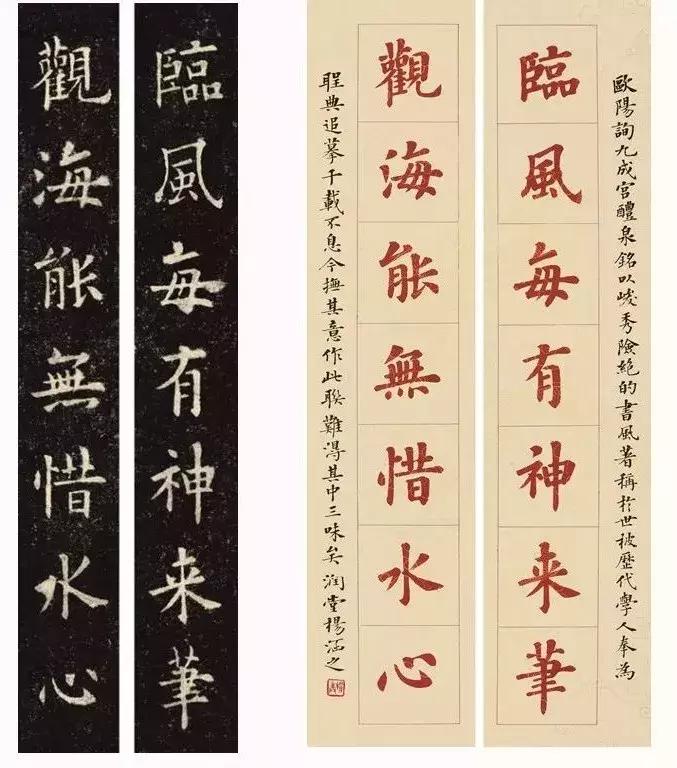 臨風毎有神来筆
觀海能無惜水心
歐陽詢九成宫醴泉銘以峻秀險絶的書風著稱於世被歷代學人奉為
臨風毎有神来筆
觀海能無惜水心
聖典追摹千載不息今撫其意作此聯難得其中三味矣 润堂楊涵之